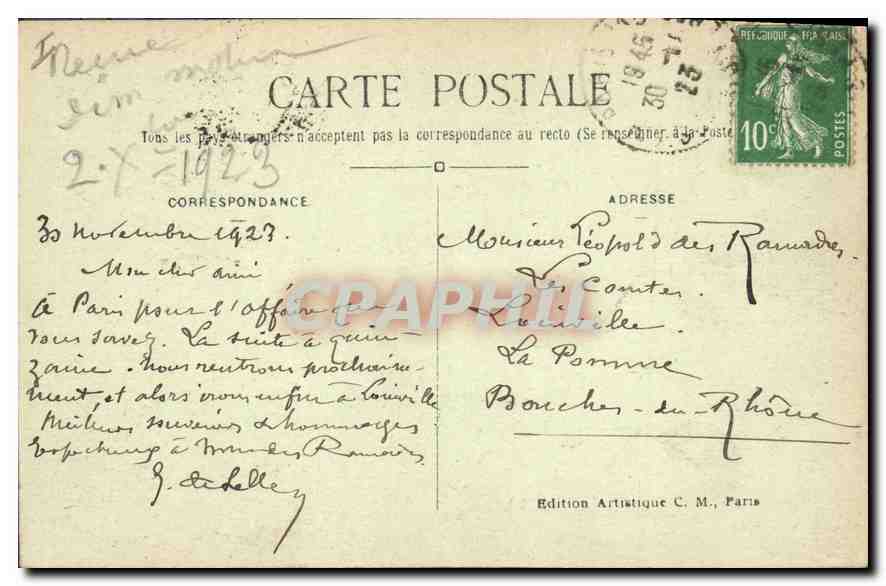 Reine
2-X-1923
CARTE POSTALE
Tous les pays étrangers n'acceptent pas la correspondance au recto (Se renseigner à la Poste
REPUBLIQUE FRANÇAISE
10c
POSTES
1945
30 -11
23
CORRESPONDANCE
30 novembre 1923.
Mon cher ami
à Paris pour l'affaire que
vous savez. La suite à quin-
zaine. Nous rentrons prochaine-
ment, et alors irons enfin à Loinville
Meilleurs souvenirs & hommages
respectueux à Mme des Ramades
G. de
ADRESSE
Monsieur Léopold des Ramades.
Les Comtes.
Loinville.
La Pomme
Bouches-du-Rhône
Edition Artistique C. M., Paris
CPAPHIL